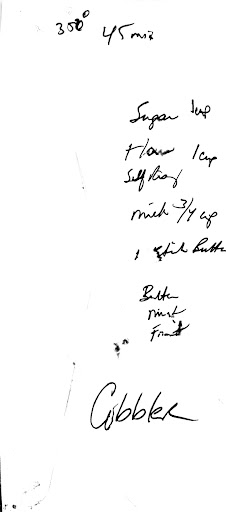 350° 45 min
Sugar 1 cup
Flour 1 cup
Self Rising
milk 3/4 cup
1 stick Butter
Butter
Fruit
Cobbler